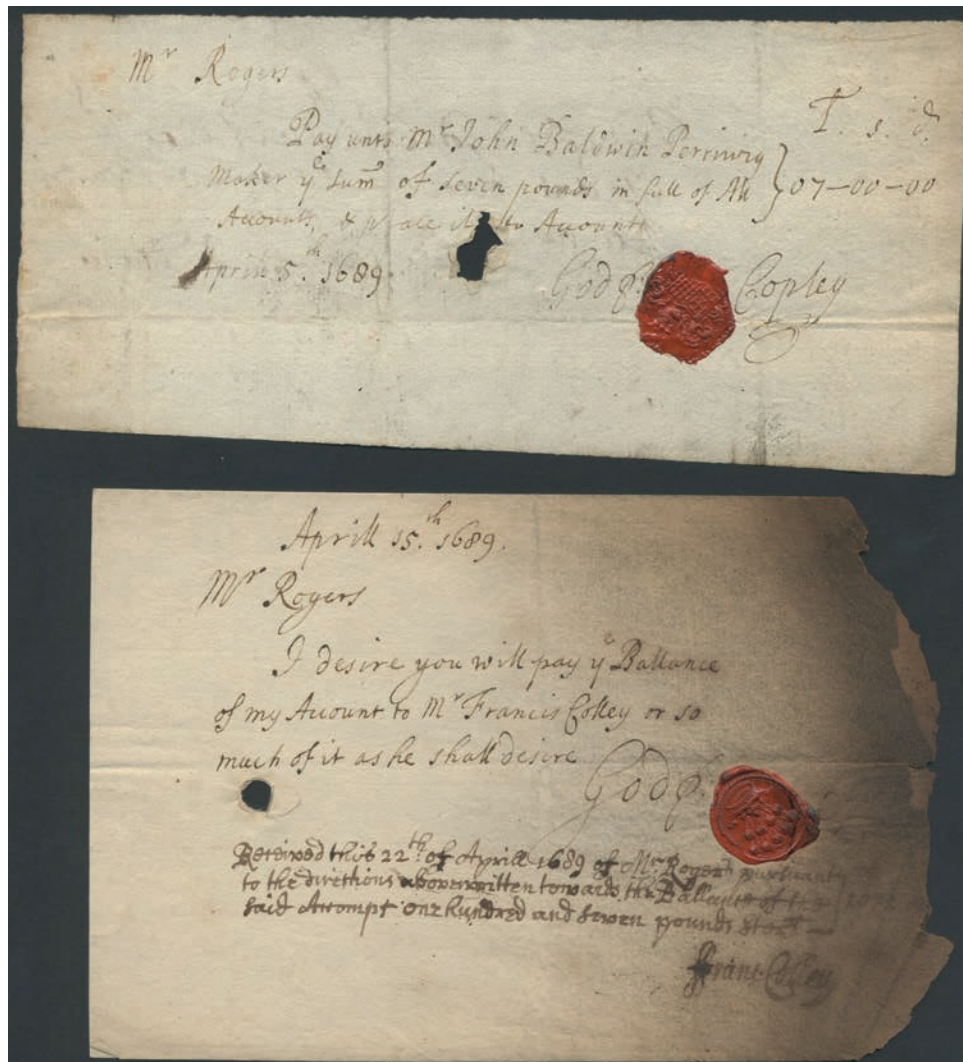 Mr Rogers
£. s. d.
Pay unto Mr John Baldwin Perriwig
Maker ye sum of seven pounds in full of All } 07-00-00
Accounts, & place it to Account
Aprill 5.th 1689.
Godf: Copley
Aprill 15.th 1689.
Mr Rogers
I desire you will pay ye Ballance
of my Account to Mr Francis Colley or so
much of it as he shall desire
Godf:
Received this 22th of Aprill 1689 of Mr Rogers pursuant
to the directions abovewritten towards the Ballance of the
said Accompt one hundred and seven pounds
Franc Colley